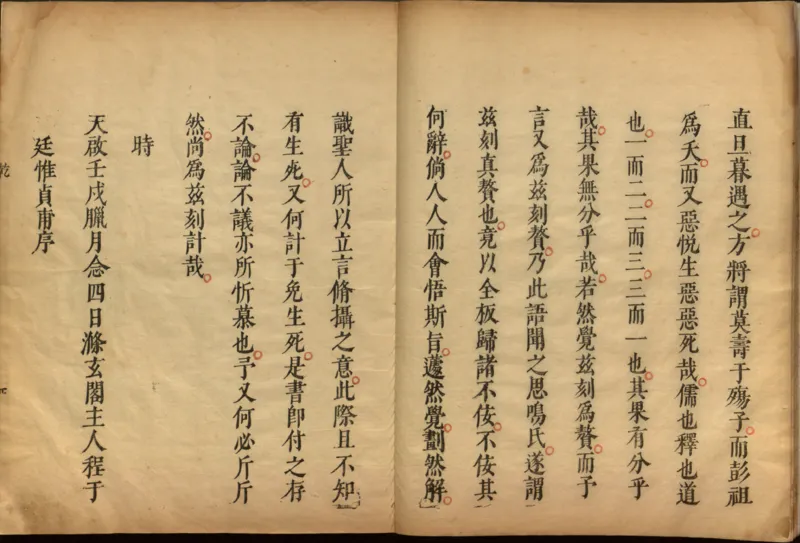 直旦暮遇之方將謂莫壽于殤子而彭祖
為夭而又惡悦生惡惡死哉儒也釋也道
也一而二二而三三而一也其果有分乎
哉其果無分乎哉若然覺茲刻為贅而予
言又為茲刻贅乃此語聞之思鳴氏遂謂
茲刻真贅也竟以全板歸諸不佞不佞其
何辭倘人人而會悟斯旨蘧然覺劃然解
識聖人所以立言脩攝之意此際且不知
有生死又何計于免生死是書即付之存
不論論不議亦所忻慕也予又何必斤斤
然尚為茲刻計哉
時
天啟壬戌臘月念四日滌玄閣主人程于
廷惟貞甫序
乾